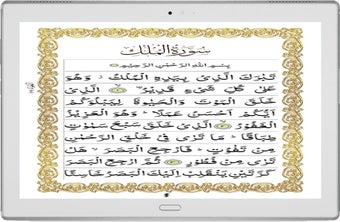 سُوْرَةُ الْمُلْكِ
بِسْمِ اللّٰهِ الرَّحْمٰنِ الرَّحِيْمِ
تَبٰرَكَ الَّذِيْ بِيَدِهِ الْمُلْكُ وَهُوَ
عَلٰى كُلِّ شَيْءٍ قَدِيْرٌ الَّذِيْ
خَلَقَ الْمَوْتَ وَالْحَيٰوةَ لِيَبْلُوَكُمْ
اَيُّكُمْ اَحْسَنُ عَمَلًا وَهُوَ الْعَزِيْزُ
الْغَفُوْرُ الَّذِيْ خَلَقَ سَبْعَ سَمٰوٰتٍ
طِبَاقًا مَا تَرٰى فِيْ خَلْقِ الرَّحْمٰنِ
مِنْ تَفٰوُتٍ فَارْجِعِ الْبَصَرَ هَلْ
تَرٰى مِنْ فُطُوْرٍ ثُمَّ ارْجِعِ الْبَصَرَ
كَرَّتَيْنِ يَنْقَلِبْ اِلَيْكَ الْبَصَرُ خَاسِئًا